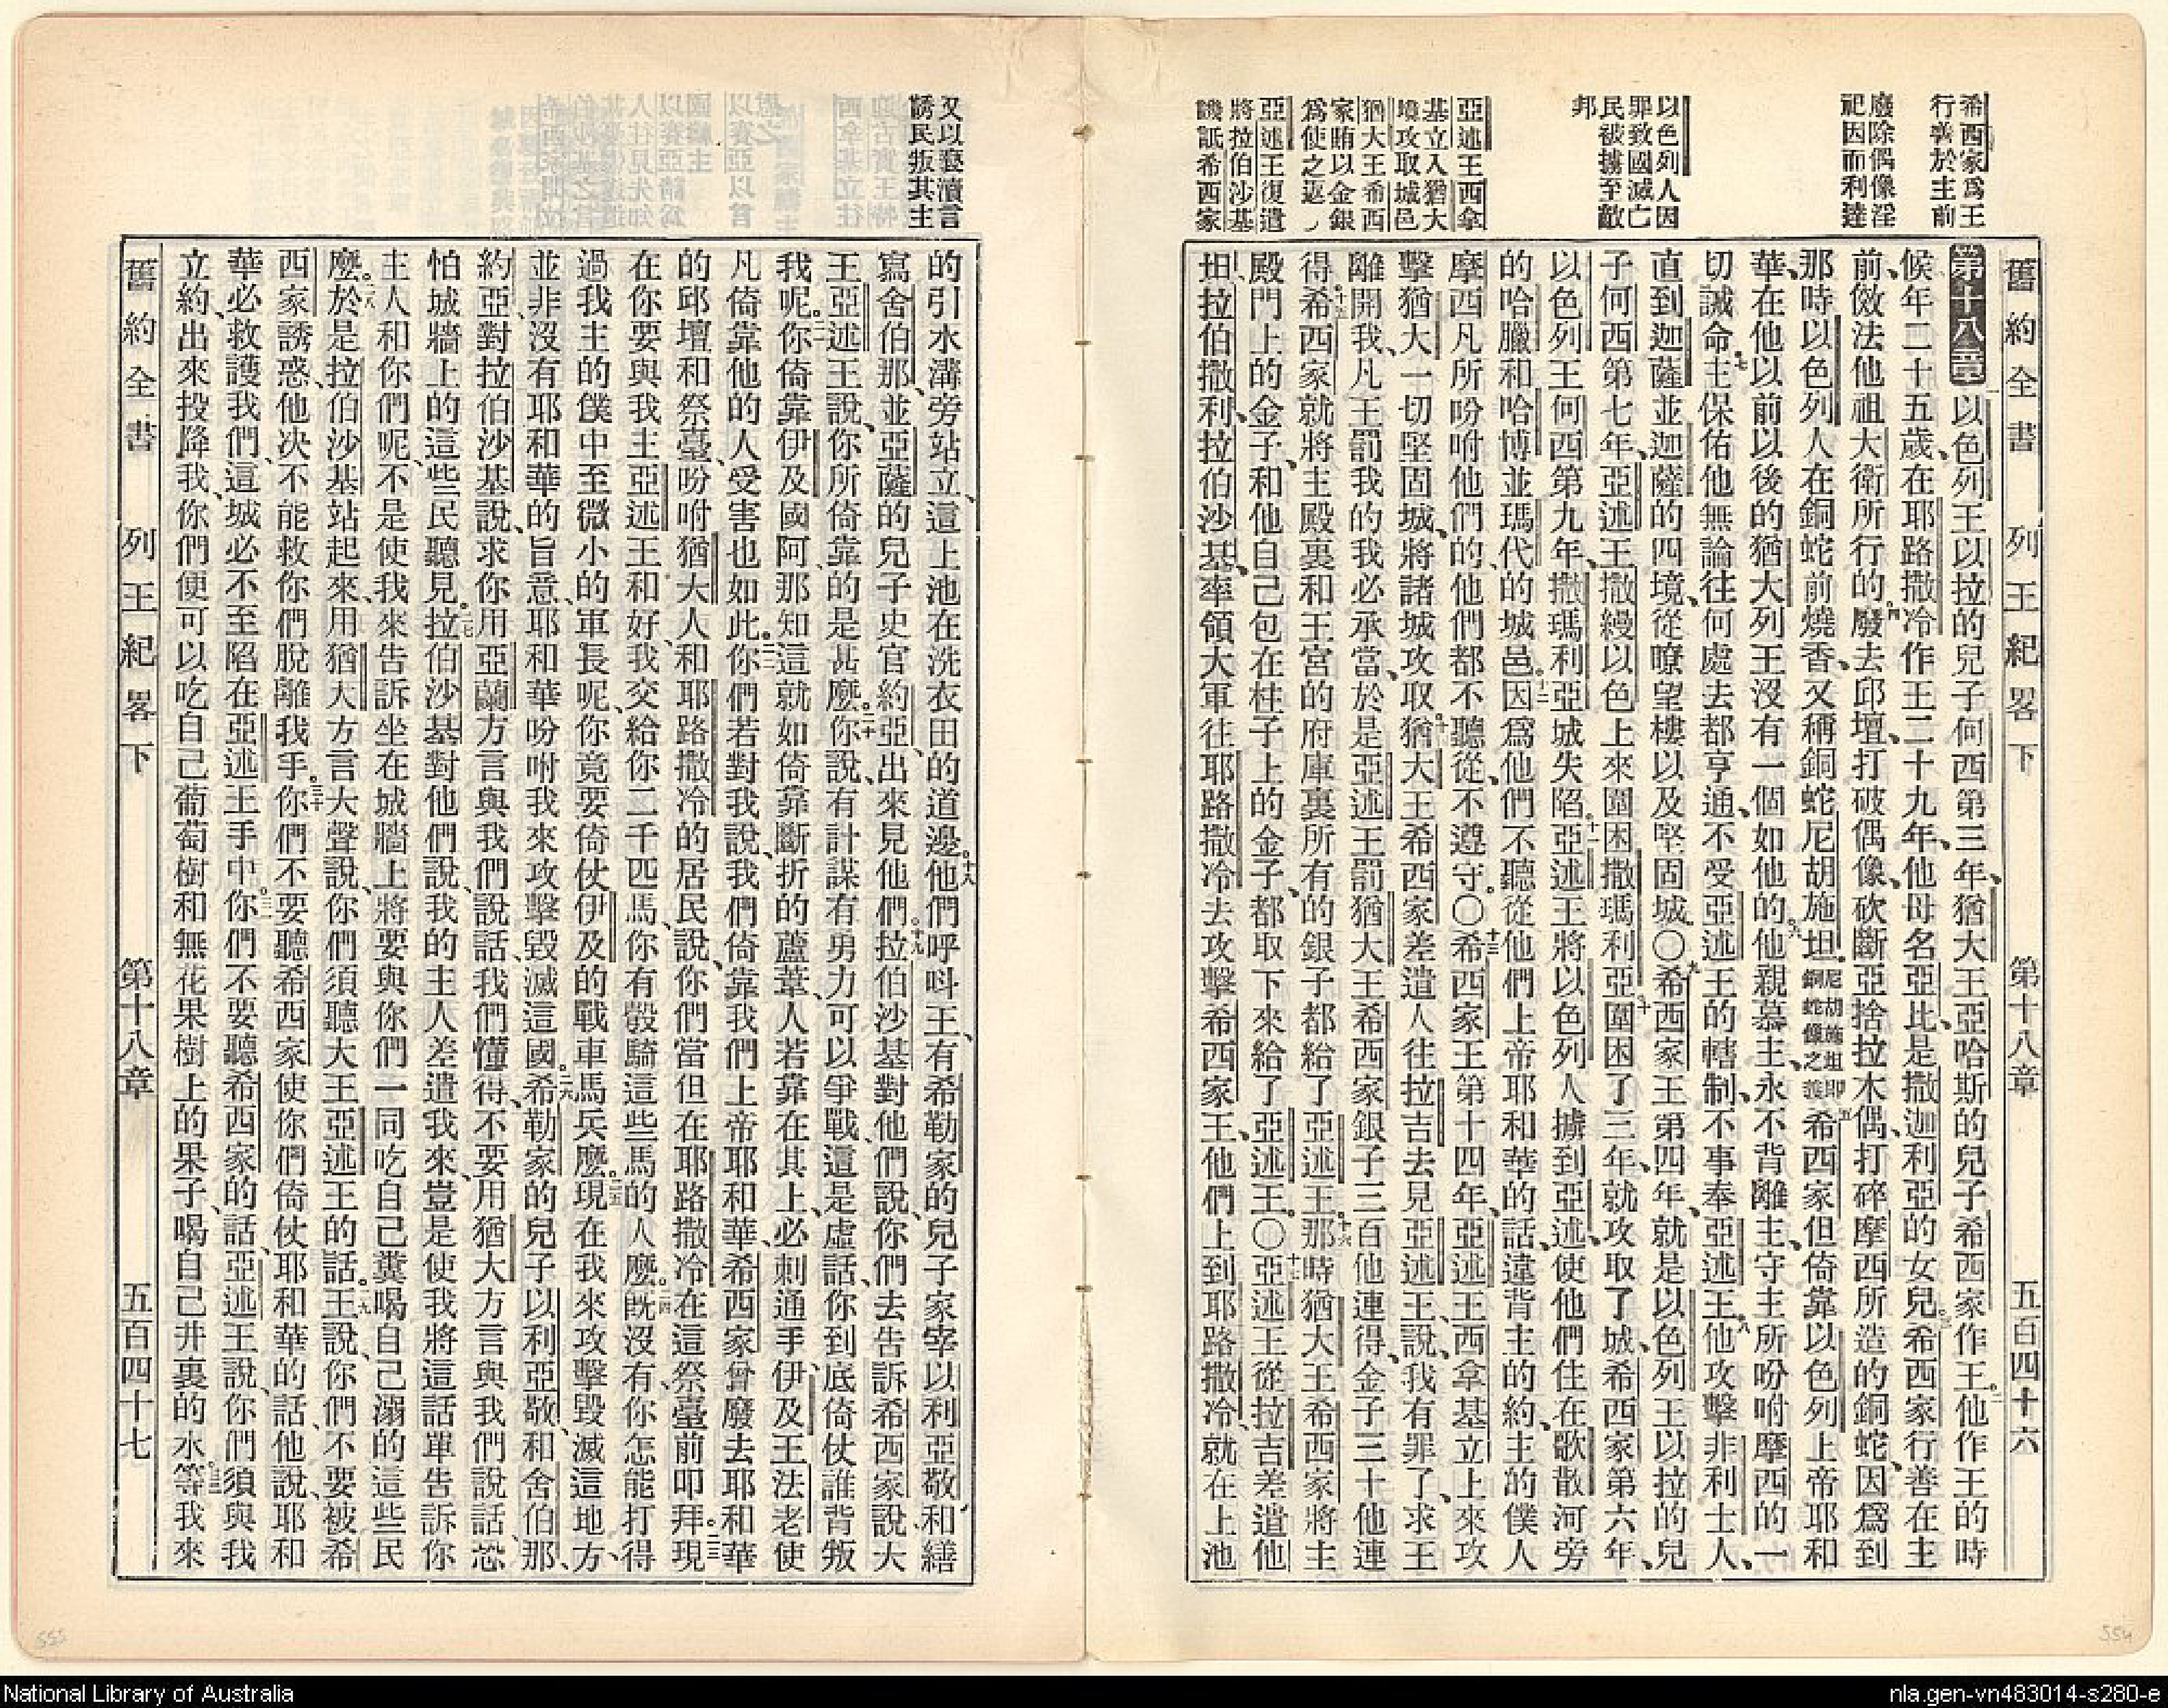 希西家爲王
行善於主前
廢除偶像淫
祀因而利達
以色列人因
罪致國滅亡
民被擄至敵
邦
亞述王西拿
基立入猶大
境攻取城邑
猶大王希西
家賄以金銀
爲使之返
亞述王復遣
將拉伯沙基
譏詆希西家
舊約全書 列王紀畧下 第十八章 五百四十六
第十八章 一以色列王以拉的兒子何西第三年、猶大王亞哈斯的兒子希西家作王。二他作王的時
候、年二十五歲、在耶路撒冷作王二十九年、他母名亞比、是撒迦利亞的女兒。三希西家行善在主
前、傚法他祖大衛所行的。四廢去邱壇、打破偶像、砍斷亞捨拉木偶、打碎摩西所造的銅蛇、因爲到
那時以色列人在銅蛇前燒香、又稱銅蛇尼胡施坦。尼胡施坦卽銅蛇像之義五希西家但倚靠以色列上帝耶和
華、在他以前以後的猶大列王沒有一個如他的。六他親慕主、永不背離主、守主所吩咐摩西的一
切誡命。七主保佑他無論往何處去都亨通、不受亞述王的轄制、不事奉亞述王。八他攻擊非利士人、
直到迦薩並迦薩的四境、從瞭望樓以及堅固城。〇九希西家王第四年、就是以色列王以拉的兒
子何西第七年、亞述王撒縵以色上來圍困撒瑪利亞。十圍困了三年、就攻取了城、希西家第六年、
以色列王何西第九年、撒瑪利亞城失陷。十一亞述王將以色列人擄到亞述、使他們住在歌散河旁
的哈臘和哈博、並瑪代的城邑。十二因爲他們不聽從他們上帝耶和華的話、違背主的約、主的僕人
摩西凡所吩咐他們的、他們都不聽從、不遵守。〇十三希西家王第十四年、亞述王西拿基立上來攻
擊猶大一切堅固城、將諸城攻取。十四猶大王希西家差遣人往拉吉去見亞述王、說、我有罪了、求王
離開我、凡王罰我的我必承當、於是亞述王罰猶大王希西家銀子三百他連得、金子三十他連
得。十五希西家就將主殿裏和王宮的府庫裏所有的銀子都給了亞述王。十六那時猶大王希西家將主
殿門上的金子、和他自己包在柱子上的金子、都取下來給了亞述王。〇十七亞述王從拉吉差遣他
坦、拉伯撒利、拉伯沙基、率領大軍往耶路撒冷去攻擊希西家王、他們上到耶路撒冷、就在上池
又以褻瀆言
誘民叛其主
的引水溝旁站立、這上池在洗衣田的道邊。十八他們呼呌王、有希勒家的兒子家宰以利亞敬、和繕
寫舍伯那、並亞薩的兒子史官約亞、出來見他們。十九拉伯沙基對他們說、你們去告訴希西家說、大
王亞述王說、你所倚靠的是甚麽。二十你說、有計謀有勇力可以爭戰、這是虛話、你到底倚仗誰背叛
我呢。二一你倚靠伊及國阿、那知這就如倚靠斷折的蘆葦、人若靠在其上、必刺通手、伊及王法老使
凡倚靠他的人受害也如此。二二你們若對我說、我們倚靠我們上帝耶和華、希西家曾廢去耶和華
的邱壇和祭臺、吩咐猶大人和耶路撒冷的居民說、你們當但在耶路撒冷在這祭臺前叩拜。二三現
在你要與我主亞述王和好、我交給你二千匹馬、你有彀騎這些馬的人麽。二四旣沒有、你怎能打得
過我主的僕中至微小的軍長呢、你竟要倚仗伊及的戰車馬兵麽。二五現在我來攻擊毀滅這地方、
並非沒有耶和華的旨意、耶和華吩咐我來攻擊毀滅這國。二六希勒家的兒子以利亞敬、和舍伯那、
約亞、對拉伯沙基說、求你用亞蘭方言與我們說話、我們懂得、不要用猶大方言與我們說話、恐
怕城牆上的這些民聽見。二七拉伯沙基對他們說、我的主人差遣我來、豈是使我將這話單告訴你
主人和你們呢、不是使我來告訴坐在城牆上將要與你們一同吃自己糞喝自己溺的這些民
麽。二八於是拉伯沙基站起來、用猶大方言大聲說、你們須聽大王亞述王的話。二九王說、你們不要被希
西家誘惑、他决不能救你們脫離我手。三十你們不要聽希西家使你們倚仗耶和華的話、他說、耶和
華必救護我們、這城必不至陷在亞述王手中。三一你們不要聽希西家的話、亞述王說、你們須與我
立約、出來投降我、你們便可以吃自己葡萄樹和無花果樹上的果子、喝自己井裏的水。三二等我來
舊約全書 列王紀畧下 第十八章 五百四十七
555
554
National Library of Australia
nla.gen-vn483014-s280-e